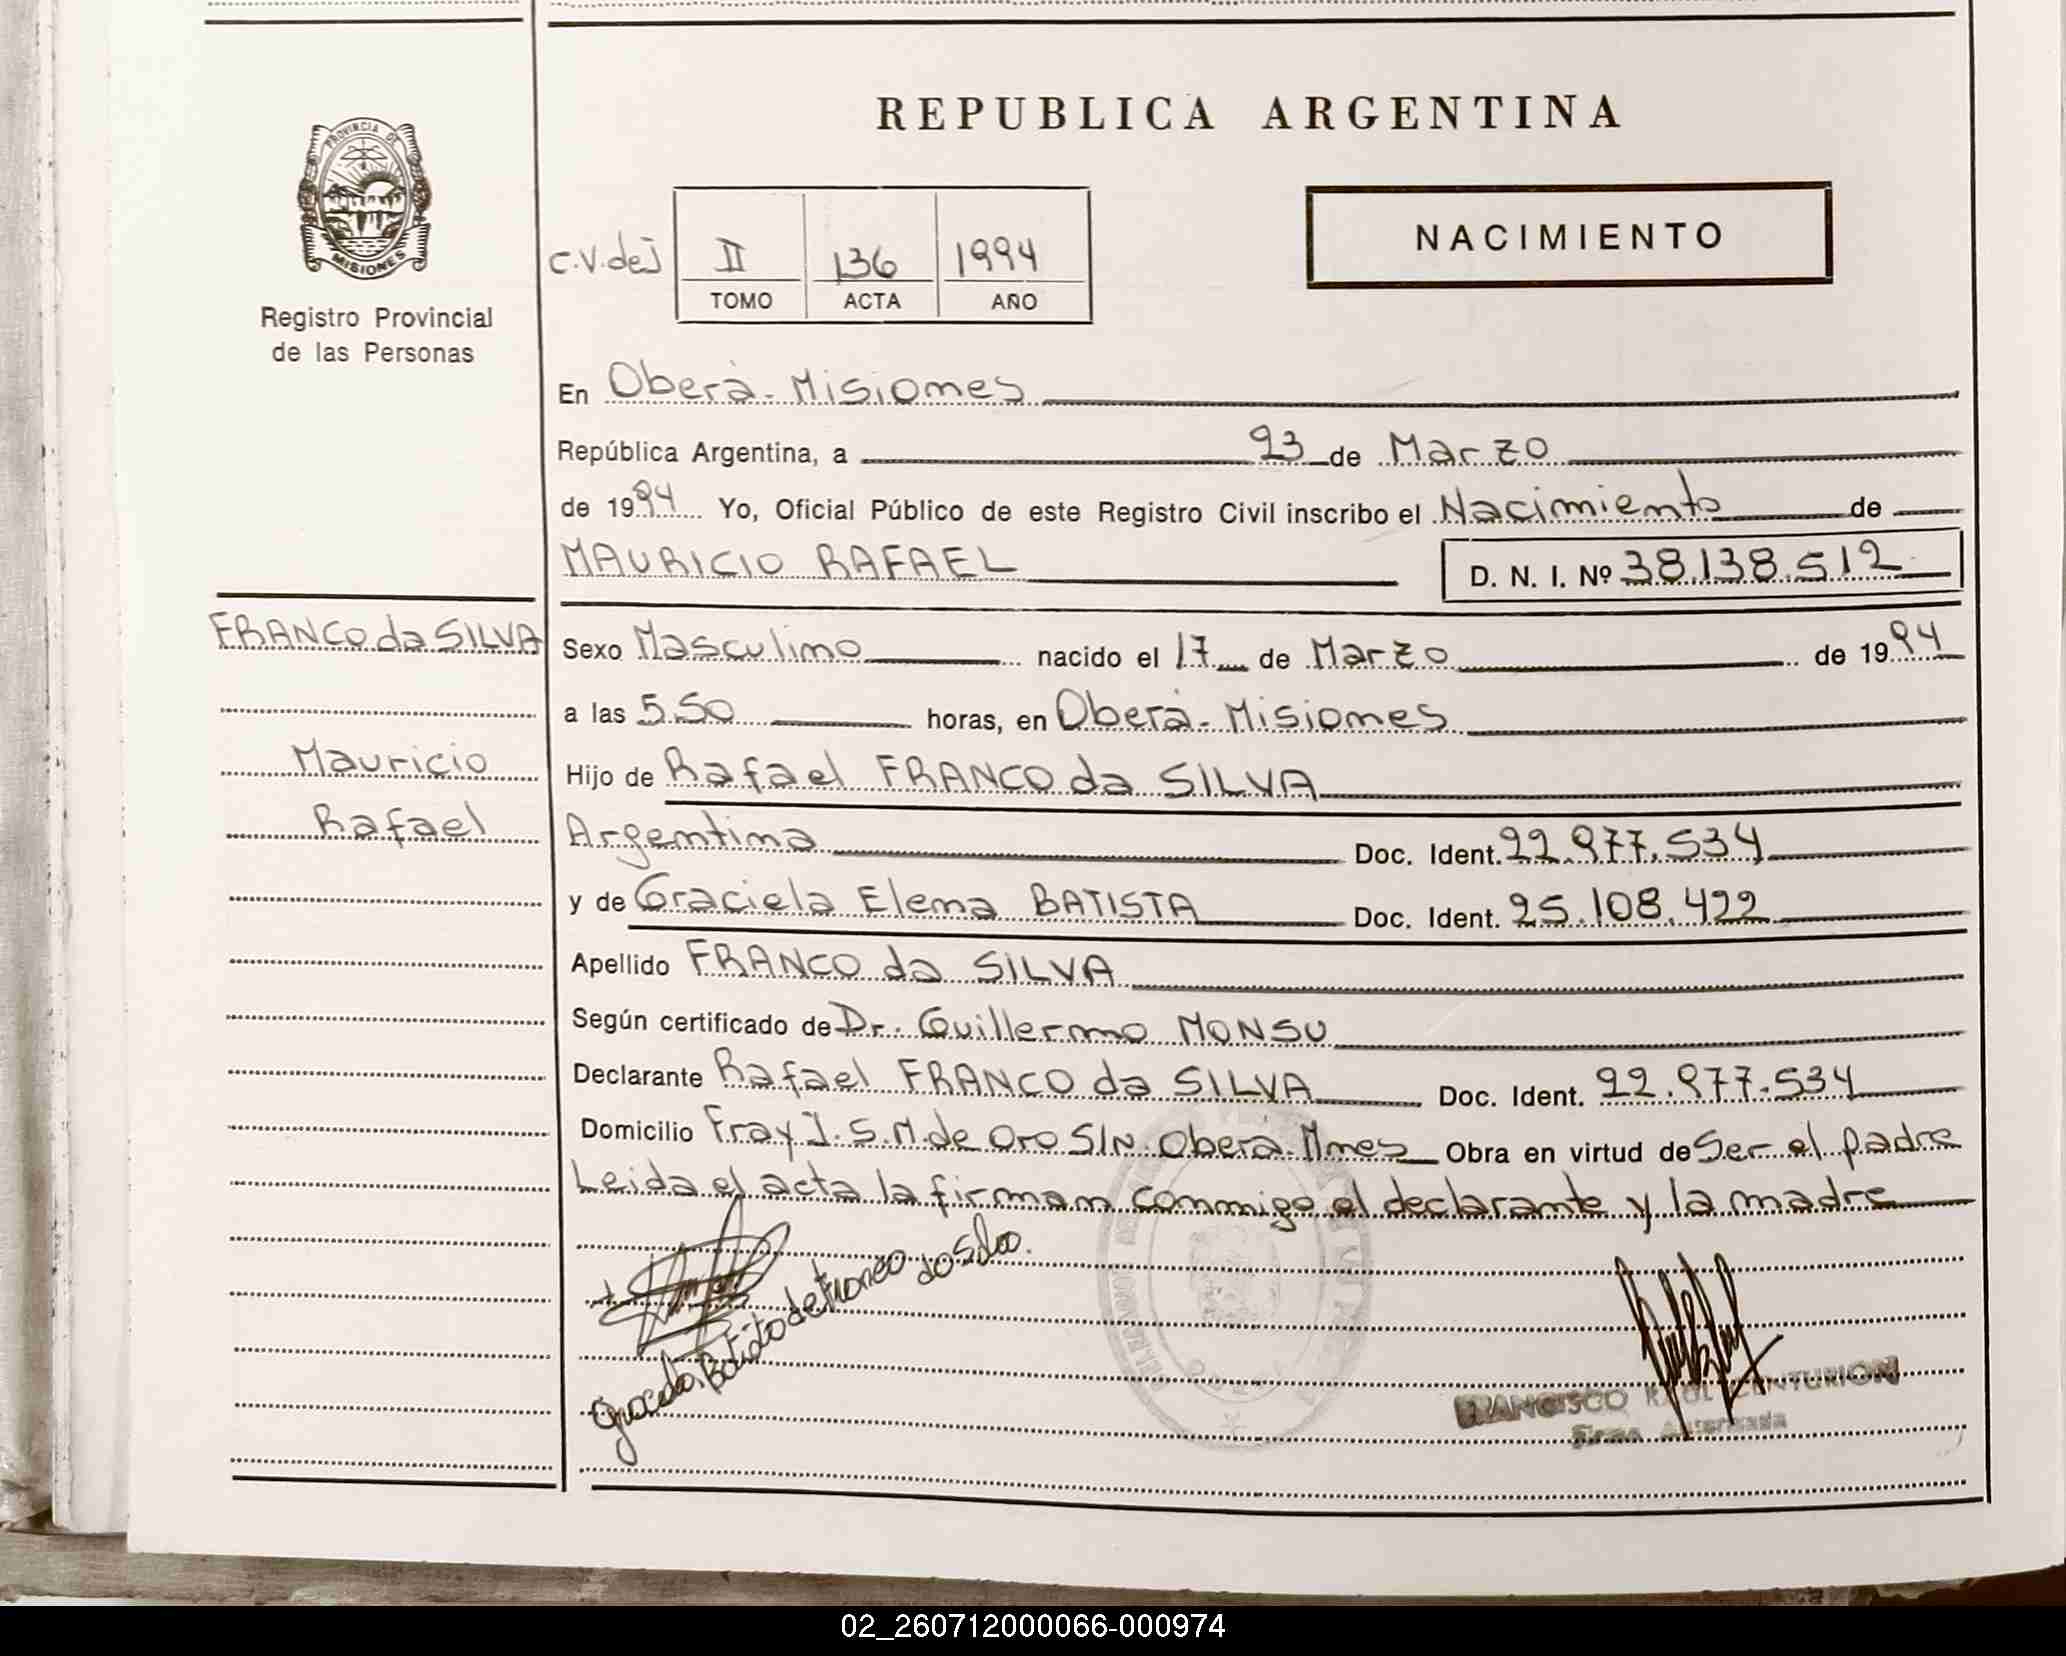 REPUBLICA ARGENTINA
PROVINCIA DE
MISIONES
Registro Provincial
de las Personas
C.V. de J
II 136 1994
TOMO ACTA AÑO
NACIMIENTO
En Oberá - Misiones
República Argentina, a 23 de Marzo
de 1994 Yo, Oficial Público de este Registro Civil inscribo el Nacimiento de
MAURICIO RAFAEL D. N. I. Nº 38.138.512
FRANCO da SILVA
Mauricio
Rafael
Sexo Masculino nacido el 17 de Marzo de 1994
a las 5.50 horas, en Oberá - Misiones
Hijo de Rafael FRANCO da SILVA
Argentina Doc. Ident. 22.977.534
y de Graciela Elena BATISTA Doc. Ident. 25.108.422
Apellido FRANCO da SILVA
Según certificado de Dr. Guillermo MONSU
Declarante Rafael FRANCO da SILVA Doc. Ident. 22.977.534
Domicilio Fray J. S. M. de Oro S/N. Oberá. Mnes Obra en virtud de Ser el padre
Leida el acta la firman conmigo el declarante y la madre
FRANCISCO RAUL CENTURION
Firma Autorizada
02_260712000066-000974